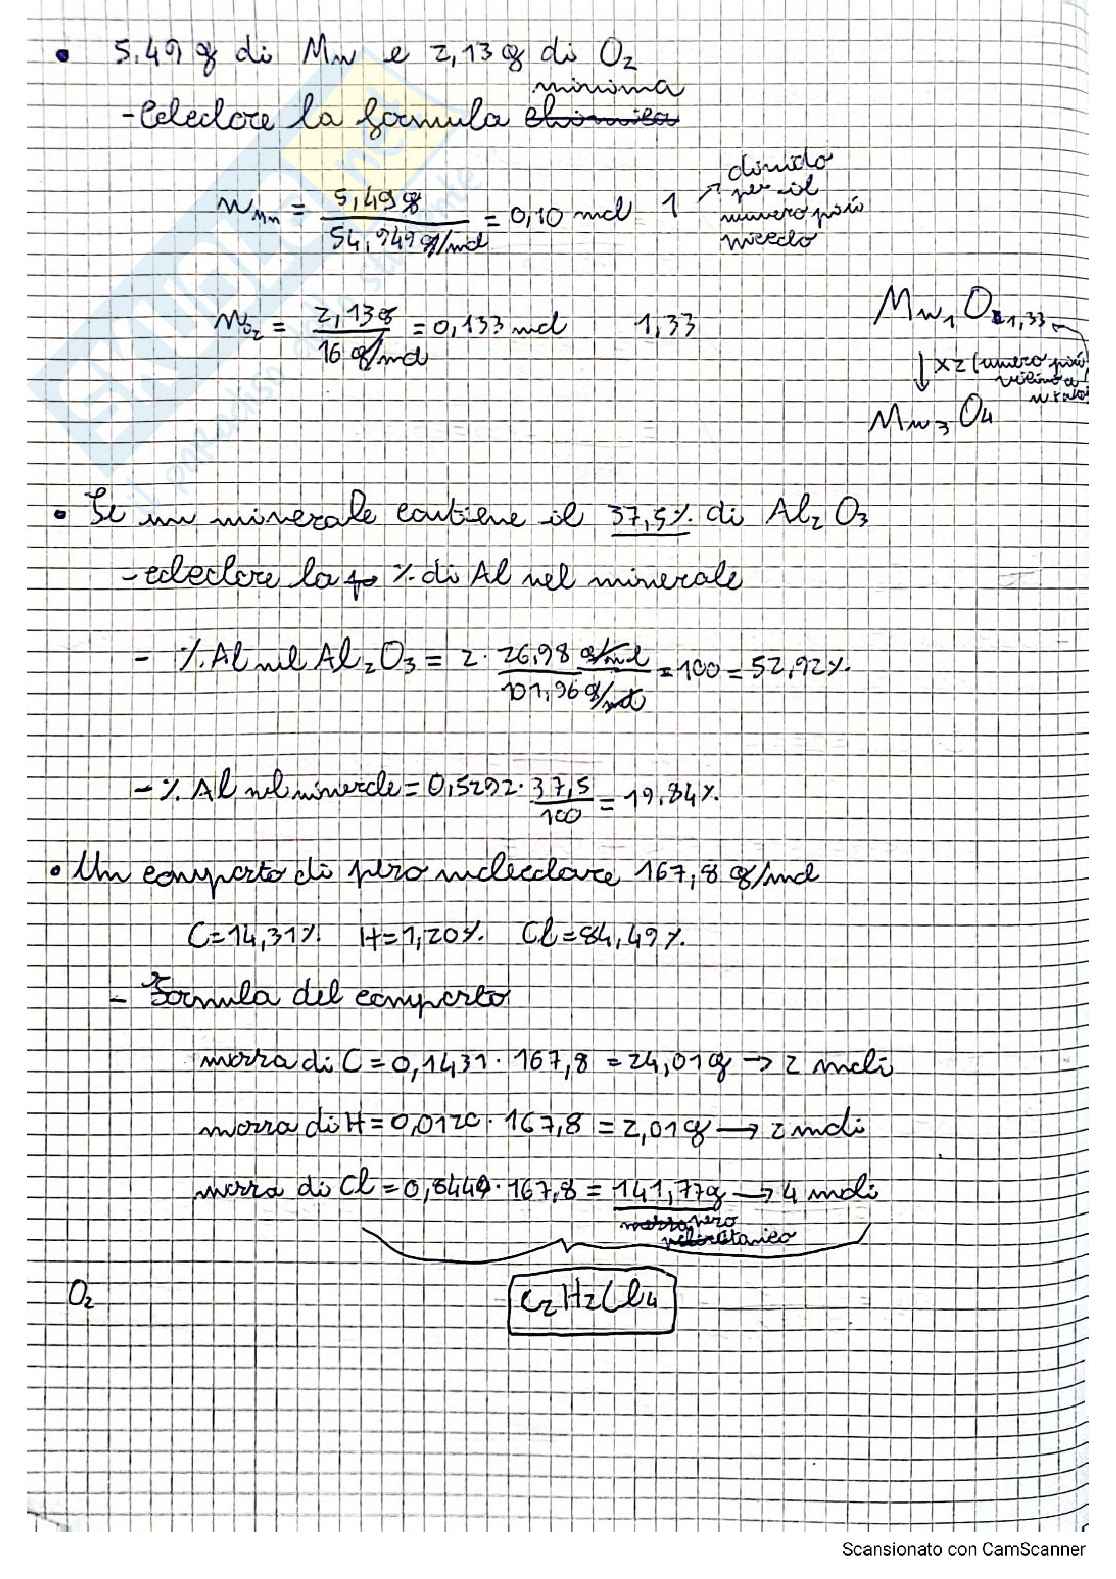 • 5,49 g di Mn e 2,13 g di O2
minima
- Calcolare la formula chimica
n Mn = 5,49 g / 54,949 g/mol = 0,10 mol 1 → divido per il numero più piccolo
n O2 = 2,13 g / 16 g/mol = 0,133 mol 1,33
Mn1 O1,33
↓ x2 (numero più vicino a
Mn3 O4
• Se un minerale contiene il 37,5% di Al2 O3
- calcolare la % di Al nel minerale
- % Al nel Al2O3 = 2 · 26,98 g/mol / 101,96 g/mol = 100 = 52,92%
- % Al nel minerale = 0,5292 · 37,5 / 100 = 19,84%
• Un composto di peso molecolare 167,8 g/mol
C=14,31% H=1,20% Cl=84,49%
- Formula del composto
massa di C = 0,1431 · 167,8 = 24,01 g → 2 moli
massa di H = 0,0120 · 167,8 = 2,01 g → 2 moli
massa di Cl = 0,8449 · 167,8 = 141,77 g → 4 moli
peso
O2
C2H2Cl4
Scansionato con CamScanner